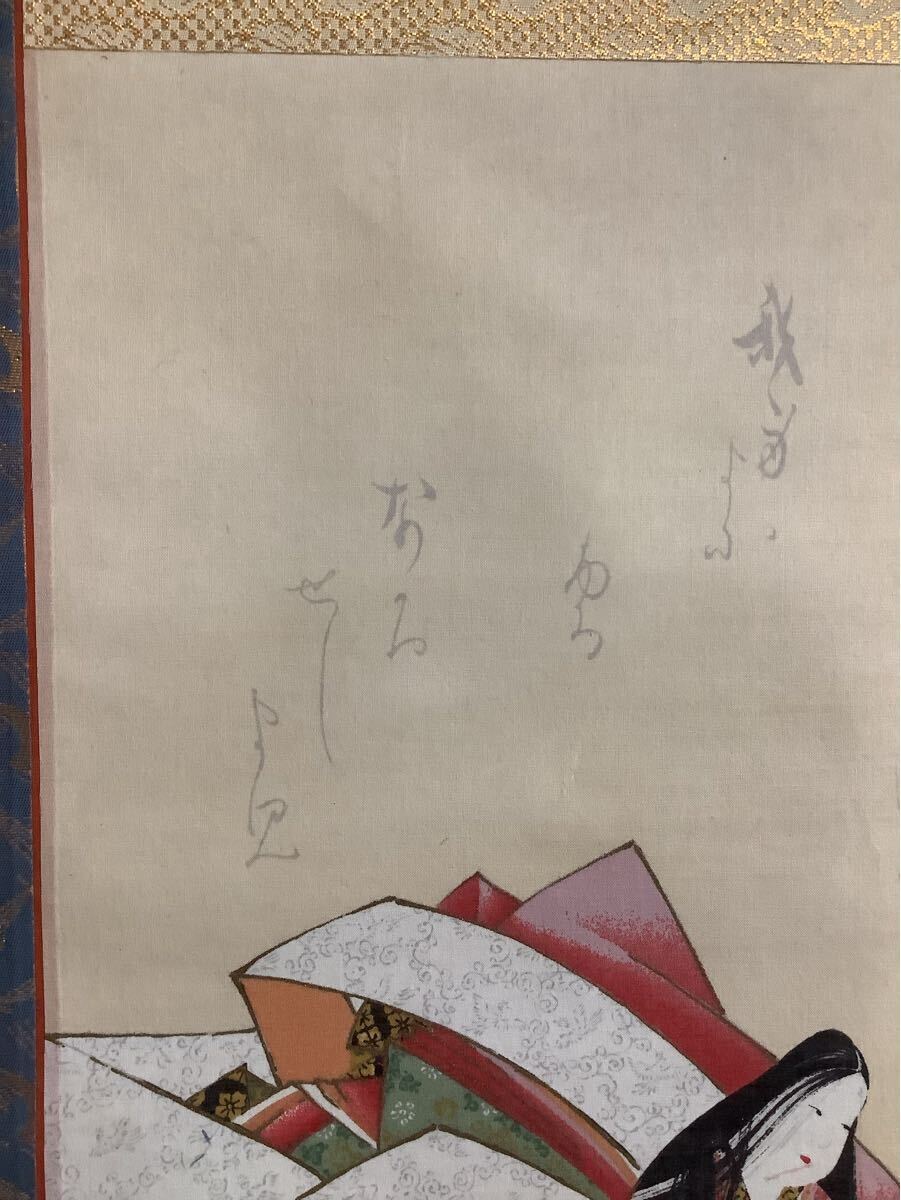 我身
よに
ふる
なかめ
せし
まに